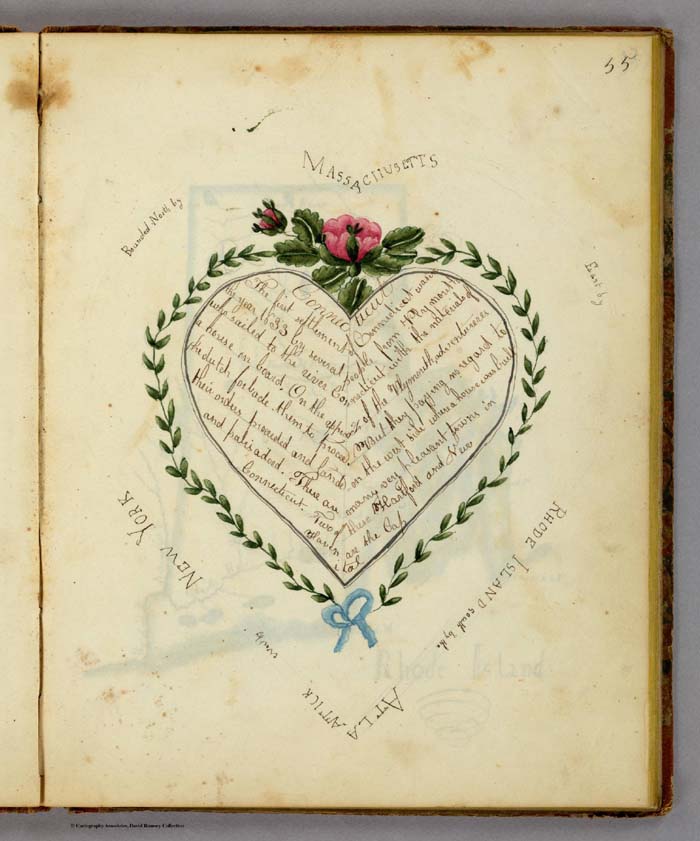 55
Bounded North by
MASSACHUSETTS
East by
RHODE ISLAND south by the
ATLAANTICK
west by
NEW YORK
Connecticut
The first settlement of Connecticut was in
the year 1633 by several people from Plymouth
who sailed to the river Connecticut with the materials of
a house on board. On the approach of the Plymouth adventurers
the dutch forbade them to proceed but they paying no regard to
their orders proceeded and landed on the west side where a house was built
and palisadoed. There are many very pleasant towns in
Connecticut. Two of these Hartford and New
Haven are the Cap
ital
Rhode Island
© Cartography Associates, David Rumsey Collection